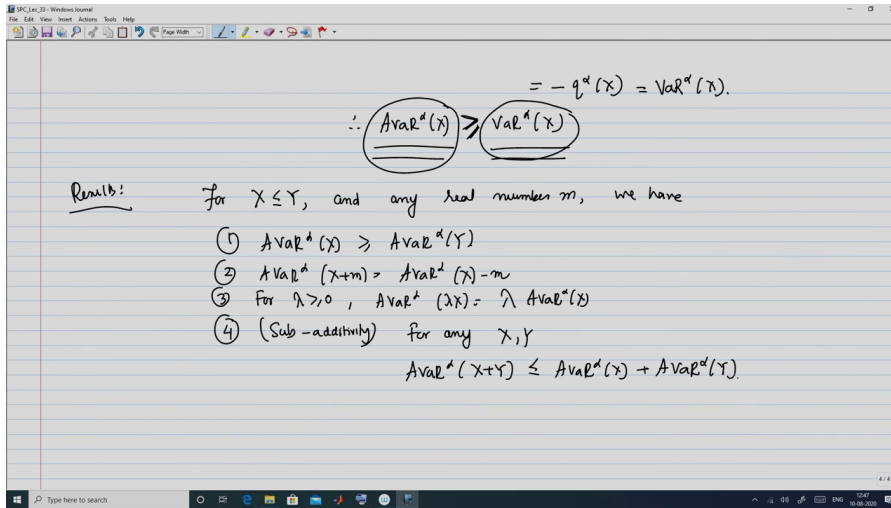 SPC_Lec_33 - Windows Journal
File Edit View Insert Actions Tools Help
Page Width
= - q^α(X) = VaR^α(X).
∴ AVaR^α(X) ≥ VaR^α(X)
Results: For X ≤ Y, and any real number m, we have
① AVaR^α(X) ≥ AVaR^α(Y)
② AVaR^α(X+m) = AVaR^α(X) - m
③ For λ ≥ 0, AVaR^α(λX) = λ AVaR^α(X)
④ (Sub-additivity) for any X, Y
AVaR^α(X+Y) ≤ AVaR^α(X) + AVaR^α(Y).
4 / 4
Type here to search
ENG
12:47
10-08-2020